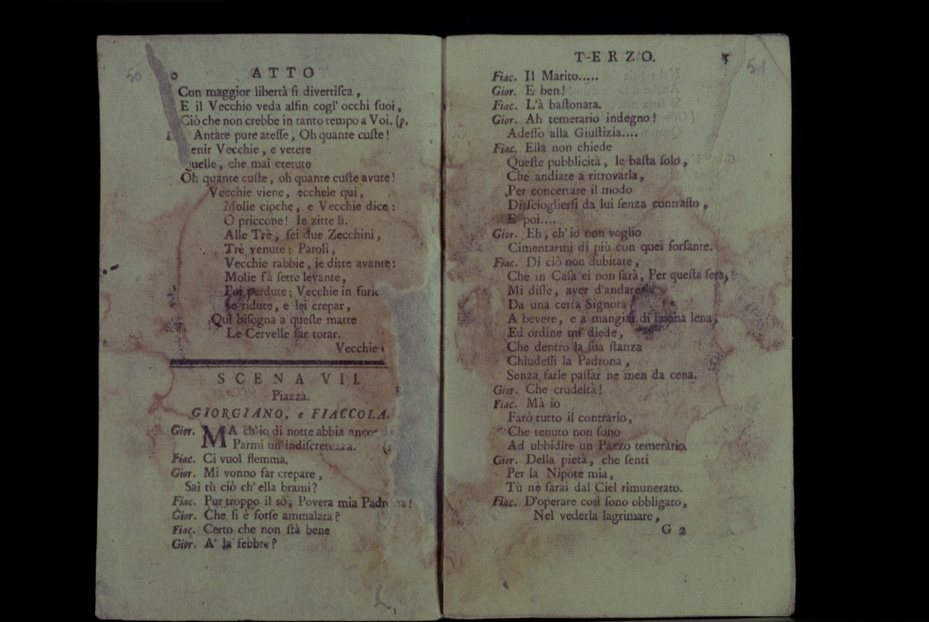 50
ATTO
Con maggior libertà si divertisca,
E il Vecchio veda alfin cogl' occhi suoi,
Ciò che non crebbe in tanto tempo a Voi. (p.
Antate pure atesse, Oh quante custe!
enir Vecchie, e vetere
quelle, che mai cretute
Oh quante custe, oh quante custe avute!
Vecchie viene, ecchele qui,
Molie cioche, e Vecchie dice:
O priccone! Ie zitte lì.
Alle Trè, sei due Zecchini,
Trè venute: Paroli,
Vecchie rabbie, ie ditte avante:
Molie fà sette levante,
Poi perdute; Vecchie in furie
Ie ridute, e lei crepar,
Qui bisogna a queste matte
Le Cervelle far torar.
Vecchie
SCENA VII.
Piazza.
GIORGIANO, e FIACCOLA.
Gior. MA ch'io di notte abbia ancor
Parmi un' indiscretezza.
Fiac. Ci vuol flemma.
Gior. Mi vonno far crepare,
Sai tù ciò ch' ella brami?
Fiac. Pur troppo il sò, Povera mia Padrona!
Gior. Che si è forse ammalata?
Fiac. Certo che non stà bene
Gior. A' la febbre?
TERZO.
51
Fiac. Il Marito.....
Gior. E ben!
Fiac. L'à bastonata.
Gior. Ah temerario indegno!
Adesso alla Giustizia....
Fiac. Ella non chiede
Queste pubblicità, le basta solo,
Che andiate a ritrovarla,
Per concertare il modo
Di sciogliersi da lui senza contrasto,
E poi....
Gior. Eh, ch' io non voglio
Cimentarmi di più con quel forsante.
Fiac. Di ciò non dubitate,
Che in Casa ei non sarà, Per questa sera,
Mi disse, aver d'andare
Da una certa Signora
A bevere, e a mangiar di buona lena,
Ed ordine mi diede,
Che dentro la sua stanza
Chiudessi la Padrona,
Senza farle passar ne men da cena.
Gior. Che crudeltà!
Fiac. Mà io
Farò tutto il contrario,
Che tenuto non sono
Ad ubbidire un Pazzo temerario.
Gior. Della pietà, che senti
Per la Nipote mia,
Tù nè sarai dal Ciel rimunerato.
Fiac. D'operare così sono obbligato,
Nel vederla lagrimare,
G 2